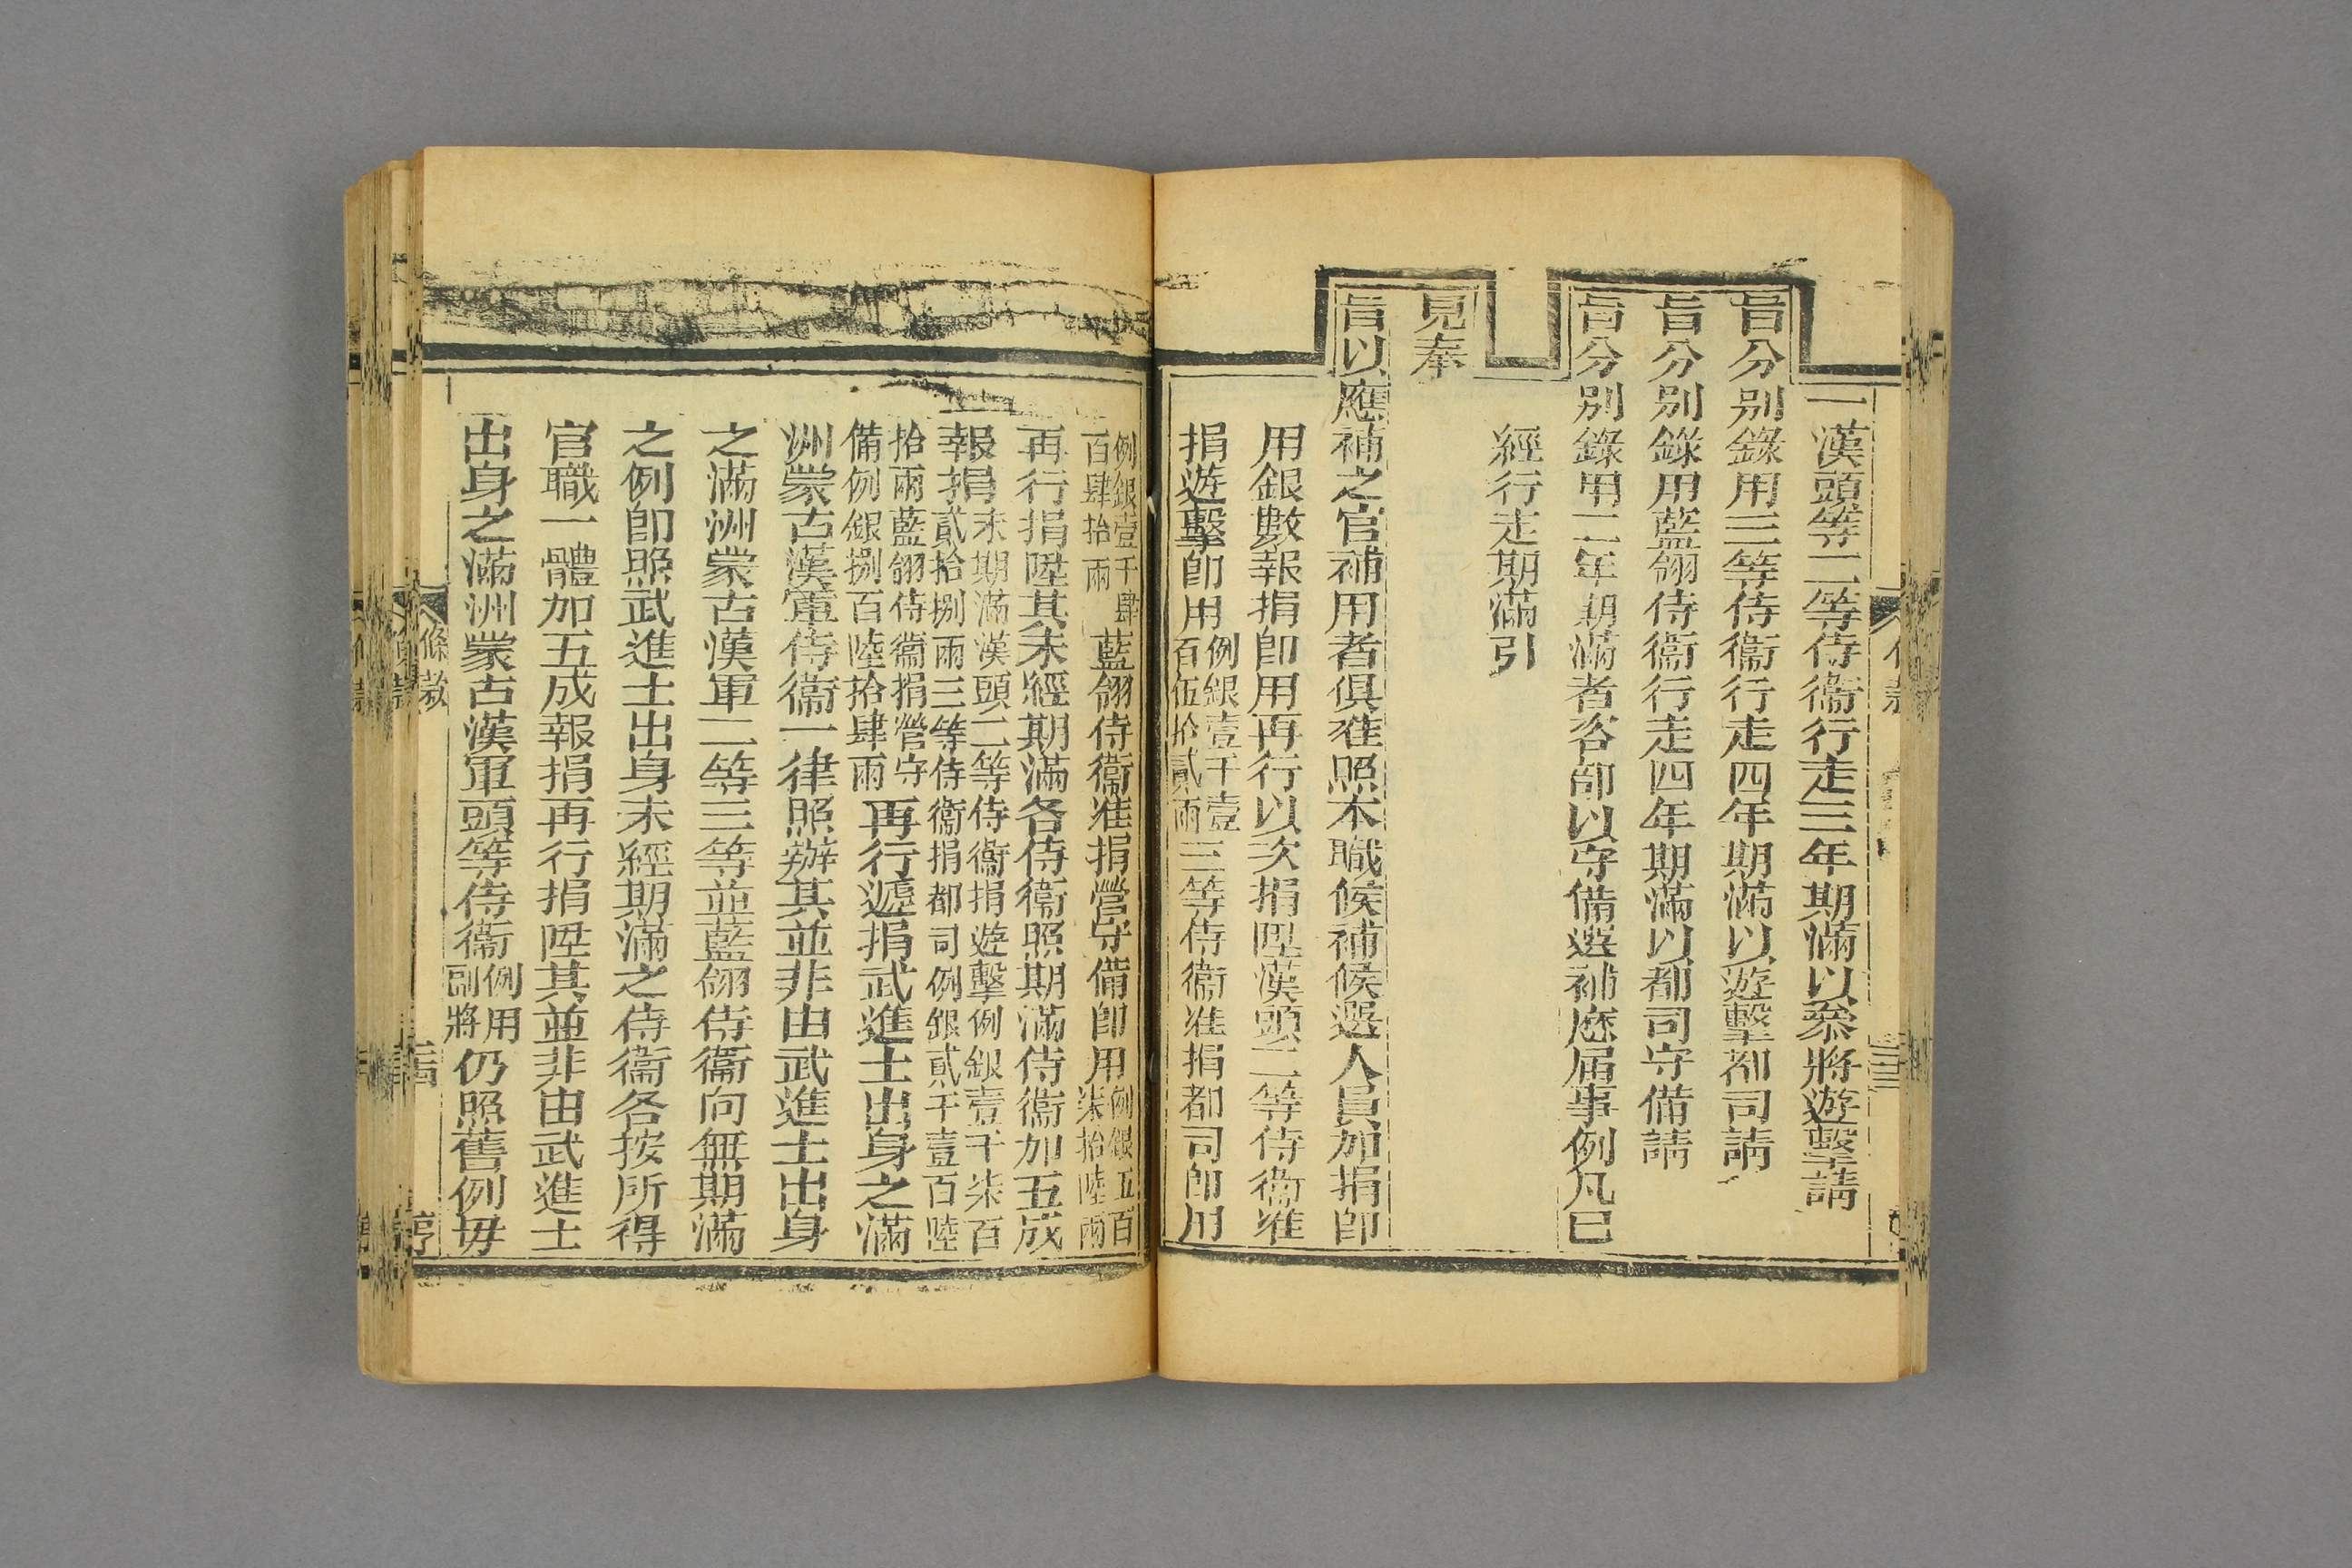 一漢頭等二等侍衞行走三年期滿以叅將遊擊請
旨分別錄用三等侍衞行走四年期滿以遊擊都司請
旨分別錄用藍翎侍衞行走四年期滿以都司守備請
旨分別錄用二年期滿者咨部以守備選補應届事例凡已
經行走期滿引
見奉
旨以應補之官補用者俱准照本職候補候選人員加捐卽
用銀數報捐卽用再行以次捐陞漢頭二等侍衞准
捐遊擊卽用例銀壹千壹百伍拾貳兩三等侍衞准捐都司卽用
例銀壹千肆百肆拾兩藍翎侍衞准捐營守備卽用例銀五百柒拾陸兩
再行捐陞其未經期滿各侍衞照期滿侍衞加五成
報捐未期滿漢頭二等侍衞捐遊擊例銀壹千柒百貳拾捌兩三等侍衞捐都司例銀貳千壹百陸
拾兩藍翎侍衞捐營守備例銀捌百陸拾肆兩再行遞捐武進士出身之滿
洲蒙古漢軍侍衞一律照辦其並非由武進士出身
之滿洲蒙古漢軍二等三等並藍翎侍衞向無期滿
之例卽照武進士出身未經期滿之侍衞各按所得
官職一體加五成報捐再行捐陞其並非由武進士
出身之滿洲蒙古漢軍頭等侍衞例用副將仍照舊例毋
條款
亨